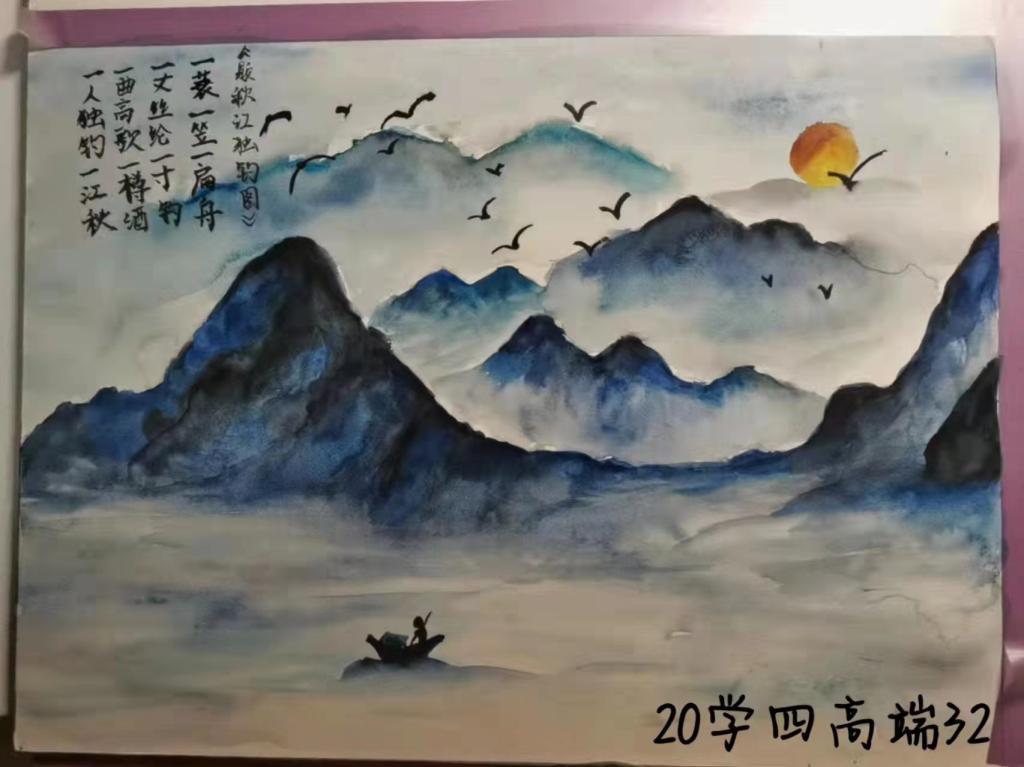 《题秋江独钓图》
一蓑一笠一扁舟
一丈丝纶一寸钩
一曲高歌一樽酒
一人独钓一江秋
20学四高端32